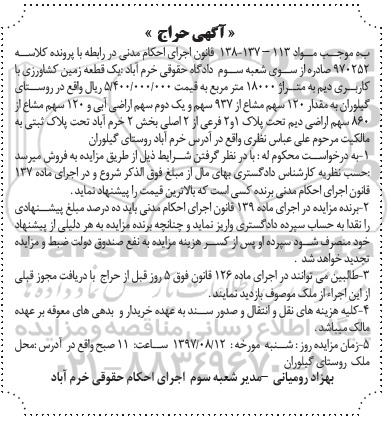 « آگهی حراج »
به موجب مواد ۱۱۳ –۱۳۷–۱۳۸ قانون اجرای احکام مدنی در رابطه با پرونده کلاسه
۹۷۰۲۵۲ صادره از سوی شعبه سوم دادگاه حقوقی خرم آباد :یک قطعه زمین کشاورزی با
کاربری دیم به متراژ ۱۸۰۰۰ متر مربع به قیمت ۵/۴۰۰/۰۰۰/۰۰۰ ریال واقع در روستای
گیلوران به مقدار ۱۲۰ سهم مشاع از ۹۳۷ سهم و یک دوم سهم اراضی آبی و ۱۲۰ سهم مشاع از
۸۶۰ سهم اراضی دیم تحت پلاک ۱و۲ فرعی از ۲ اصلی بخش ۲ خرم آباد تحت پلاک ثبتی به
مالکیت مرحوم علی عباس نظری واقع در آدرس خرم آباد روستای گیلوران
۱–به درخواست محکوم له : با در نظر گرفتن شرایط ذیل از طریق مزایده به فروش میرسد
:حسب نظریه کارشناس دادگستری بهای مال از مبلغ فوق الذکر شروع و در اجرای ماده ۱۳۷
قانون اجرای احکام مدنی برنده کسی است که بالاترین قیمت را پیشنهاد نماید .
۲–برنده مزایده در اجرای ماده ۱۳۹ قانون اجرای احکام مدنی باید ده درصد مبلغ پیشنهادی
را نقدا به حساب سپرده دادگستری واریز نماید و چنانچه برنده مزایده به هر دلیلی از پیشنهاد
خود منصرف شود سپرده او پس از کسر هزینه مزایده به نفع صندوق دولت ضبط و مزایده
تجدید خواهد شد .
۳–طالبین می توانند در اجرای ماده ۱۲۶ قانون فوق ۵ روز قبل از حراج با دریافت مجوز قبلی
از این اجراء از ملک موصوف بازدید نمایند.
۴–کلیه هزینه های نقل و انتقال و صدور سند به عهده خریدار و بدهی های معوقه بر عهده
مالک میباشد.
۵–زمان مزایده روز : شنبه مورخه : ۱۳۹۷/۰۸/۱۲ ساعت: ۱۱ صبح واقع در آدرس :محل
ملک روستای گیلوران
بهزاد رومیانی –مدیر شعبه سوم اجرای احکام حقوقی خرم آباد